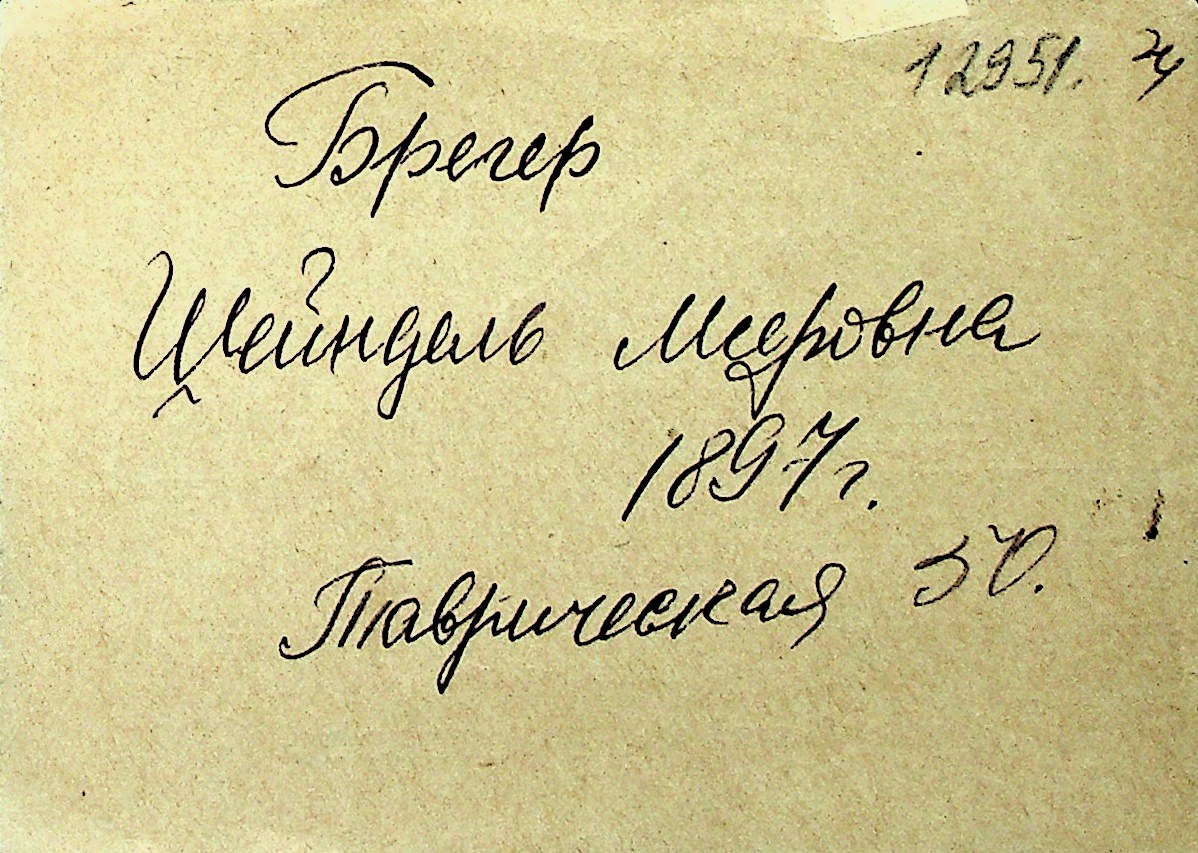 12951.
Брегер
Шейндель Мееровна
1897 г.
Таврическая 50.